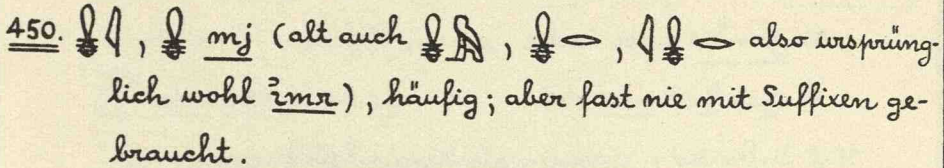 450. 𓏇𓇋, 𓏇 mj (alt auch 𓏇, 𓏇𓂋, 𓇋𓏇𓂋 also ursprüng-
lich wohl ꞽmr), häufig; aber fast nie mit Suffixen ge-
braucht.